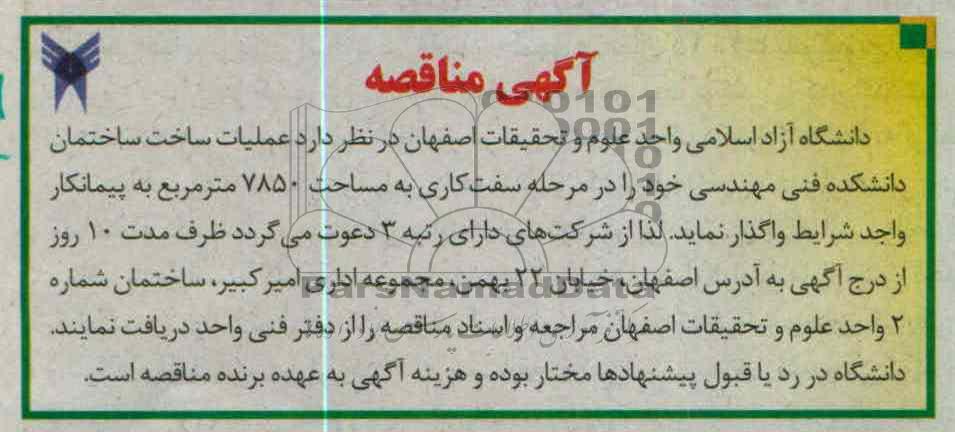 آگهی مناقصه
دانشگاه آزاد اسلامی واحد علوم و تحقیقات اصفهان در نظر دارد عملیات ساخت ساختمان
دانشکده فنی مهندسی خود را در مرحله سفت‌کاری به مساحت ۷۸۵۰ مترمربع به پیمانکار
واجد شرایط واگذار نماید. لذا از شرکت‌های دارای رتبه ۳ دعوت می‌گردد ظرف مدت ۱۰ روز
از درج آگهی به آدرس اصفهان، خیابان ۲۲ بهمن، مجموعه اداری امیرکبیر، ساختمان شماره
۲ واحد علوم و تحقیقات اصفهان مراجعه و اسناد مناقصه را از دفتر فنی واحد دریافت نمایند.
دانشگاه در رد یا قبول پیشنهادها مختار بوده و هزینه آگهی به عهده برنده مناقصه است.
ParsNamadData